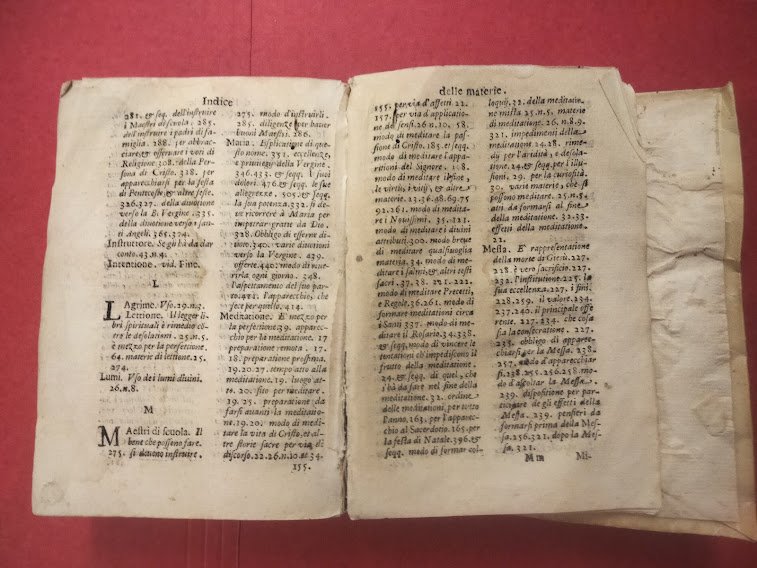 Indice
281. & seq. dell'instruire
i Maestri di scuola. 285.
dell'instruire i padri di fa-
miglia. 288. per abbrac-
ciare, & osservare i voti di
Religione 308. della Per-
sona di Cristo. 318. per
apparecchiarsi per la festa
di Pentecoste & altre feste.
326. 327. della divotione
verso la B. Vergine. 335.
della divotione verso i san-
ti Angeli. 365. 374.
Instruttore. Se gli hà da dar
conto. 43. n. 4.
Intentione. vid. Fine.
L
LAgrime. Vso. 29. n. 3.
Lettione. Il legger li-
bri spirituali è rimedio cō-
tro le desolationi. 25. n. 5.
è mezzo per la perfettione.
64. materie di lettione. 25.
274.
Lumi. Vso dei lumi diuini.
26. n. 8.
M
MAestri di scuola. Il
bene che possono fare.
275. si deuono instruire.
275. modo d'instruirli.
285. diligenze per hauer
buoni Maestri. 286.
Maria. Esplicatione di que-
sto nome. 351. eccellenze,
e privilegi della Vergine.
346. 433. & seqq. i suoi
dolori. 476. & seqq. le sue
allegrezze. 505. & seqq.
la sua potenza. 332. si de-
ve ricorrere à Maria per
impetrar gratie da Dio.
328. Obligo di esserne di-
uoto. 340. varie diuotioni
verso la Vergine. 439.
offerte. 440. modo di riue-
rirla ogni giorno. 398.
l'aspettamento del suo par-
to. 402. l'apparecchio, che
fece per quello. 414.
Meditatione. E' mezzo per
la perfettione 39. apparec-
chio per la meditatione 17
preparatione remota. 17.
18. preparatione prossima.
19. 20. 27. tempo atto alla
meditatione. 19. luogo at-
to. 20. sito per meditare
19. 25. preparatione da
farsi auanti la meditatio-
ne. 19. 20. modo di medi-
tare la vita di Cristo, et al-
tre storie sacre per via di
discorso. 22. 26. n. 10. et 34.
155.
delle materie.
155. per via d'affetti 22.
157. per via d'applicatio-
ne de' sensi. 26. n. 10. 58.
modo di meditare la pas-
sione di Cristo. 185. et seqq.
modo di meditare l'appari-
tioni del Signore. 118.
modo di meditare il fine,
le virtù, i vitij, & altre
materie. 23. 36. 48. 69. 75
92. 261. modo di medita-
re i Nouissimi. 35. 121.
modo di meditare i diuini
attributi. 300. modo breue
di meditare qualsiuoglia
materia. 34. modo di medi-
tare i salmi, & altri testi
sacri. 37. 38. 221. 222.
modo di meditar Precetti,
e Regole. 36. 261. modo di
formare meditationi circa
i Santi 337. modo di medi-
tare il Rosario. 34. 338.
& seqq. modo di vincere le
tentationi ch'impediscono il
frutto della meditatione.
24. & seqq. di quel, che
si hà da fare nel fine della
meditatione. 32. ordine
delle meditationi, per tutto
l'anno. 163. per l'apparecchio
al Sacerdotio. 165. per
la festa di Natale. 396. &
seqq. modo di formar col-
loquij. 32. della meditatio-
ne mista 25. n. 5. materie
di meditatione. 26. n. 8. 9.
321. impedimenti della
meditatione. 24. 28. rime-
dij per l'aridità, e desola-
tione. 24. & seqq. per l'illu-
sioni, 29. per la curiosità.
30. varie materie, che si
possono meditare. 35. n. 54.
atti da formarsi al fine
della meditatione. 32. 33.
effetti della meditatione.
22.
Messa. E' rappresentatione
della morte di Giesù. 227.
228. è vero sacrificio. 227.
232. l'institutione. 225. la
sua eccellenza. 227. i fini.
228. 259. il valore. 234.
237. 240. il principale offe
rente. 227. 234. che co-
sia la consecratione. 227.
233. obligo di apparec-
chiarsi per la Messa. 238.
divisione. 255. 256. 258. modo
d'ascoltar la Messa.
239. dispositione per par-
ticipare de gli effetti della
Messa. 239. pensieri da
formarsi prima della Mes-
sa. 256. 321. dopo la Mes-
sa. 321.
M m
Mi-